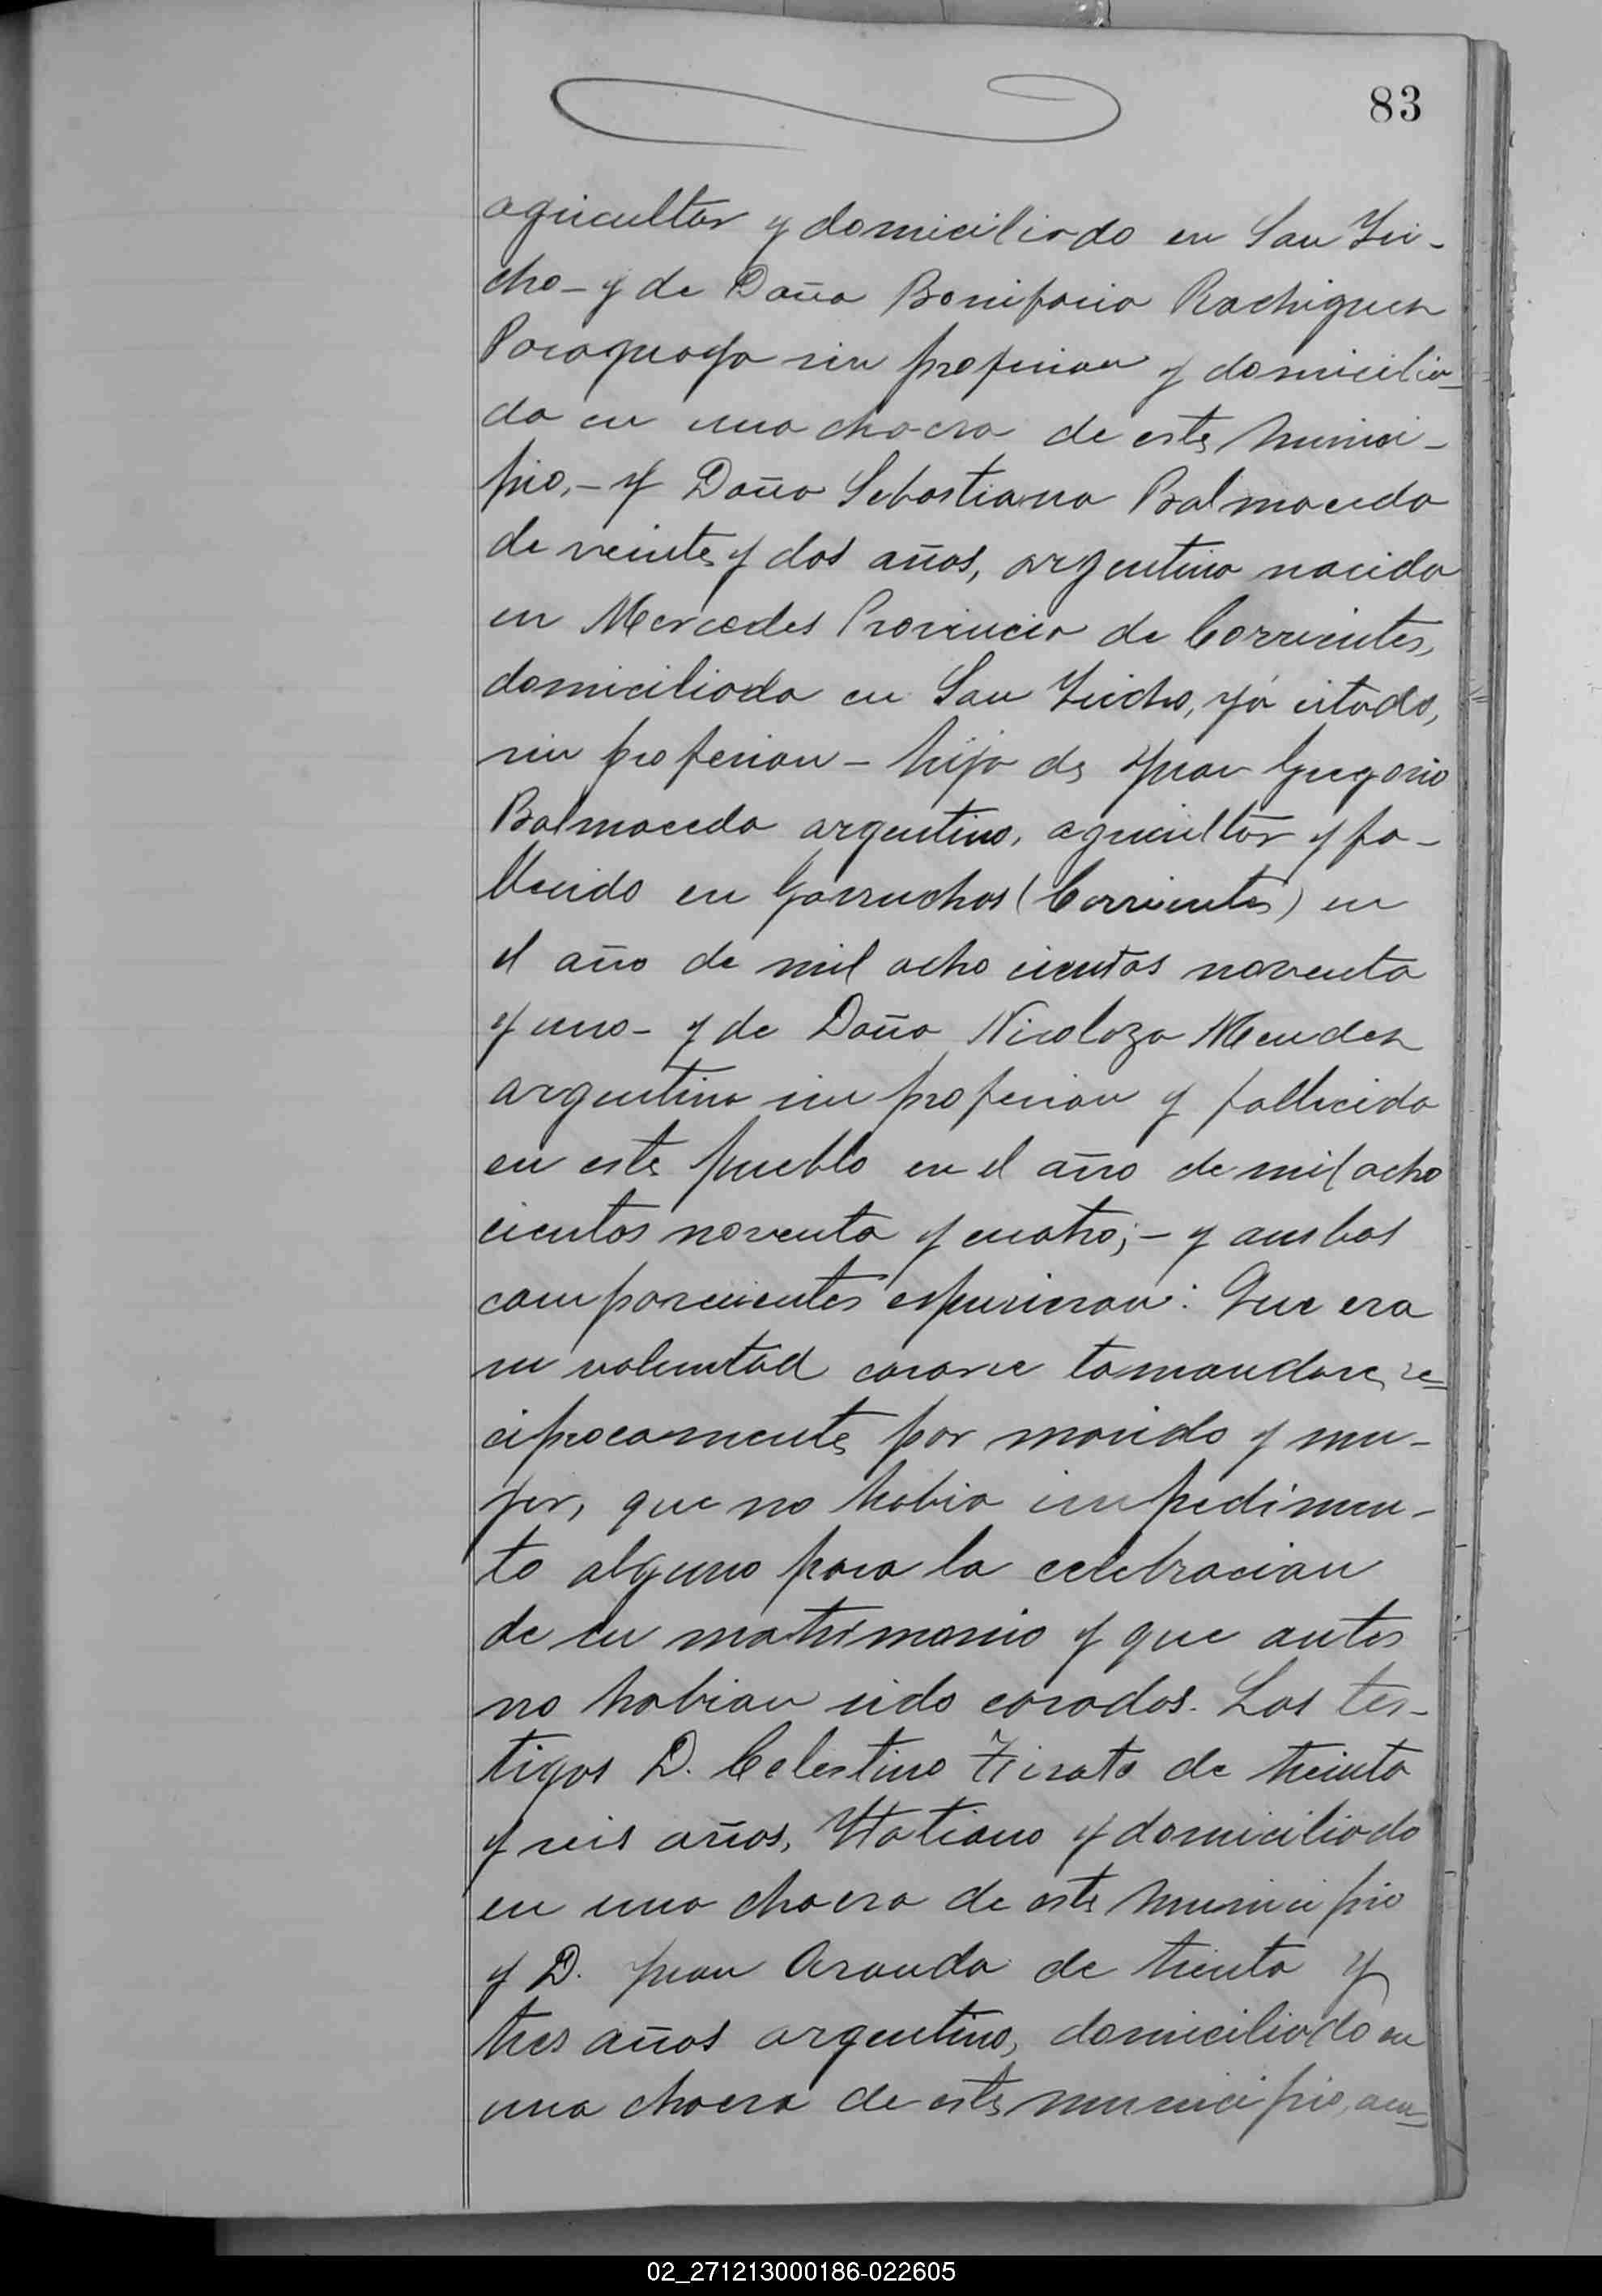 83
agricultor y domiciliado en San Jui-
cho- y de Doña Bonifacia Rodriguez
Paraguaya sin profesion y domicilia-
da en una chacra de este Munici-
pio,- y Doña Sebastiana Balmaceda
de veinte y dos años, argentina nacida
en Mercedes Provincia de Corrientes,
domiciliada en San Juicho, yá citado,
sin profesion - hija de Juan Gregorio
Balmaceda argentino, agricultor y fa-
llecido en Garruchos (Corrientes) en
el año de mil ocho cientos noventa
y uno- y de Doña Nicolaza Mendez
argentina sin profesion y fallecida
en este pueblo en el año de mil ocho
cientos noventa y cuatro; - y ambos
comparecientes espusieron: Que era
su voluntad casarse tomandose re=
ciprocamente por marido y mu-
jer, que no habia impedimen-
to alguno para la celebracion
de su matrimonio y que antes
no habian sido casados. Los tes-
tigos D. Celestino de treinta
y seis años, Italiano y domiciliado
en una chacra de este Municipio
y D. Juan Aranda de treinta y
tres años argentino, domiciliado en
una chacra de este municipio, am=
02_271213000186-022605